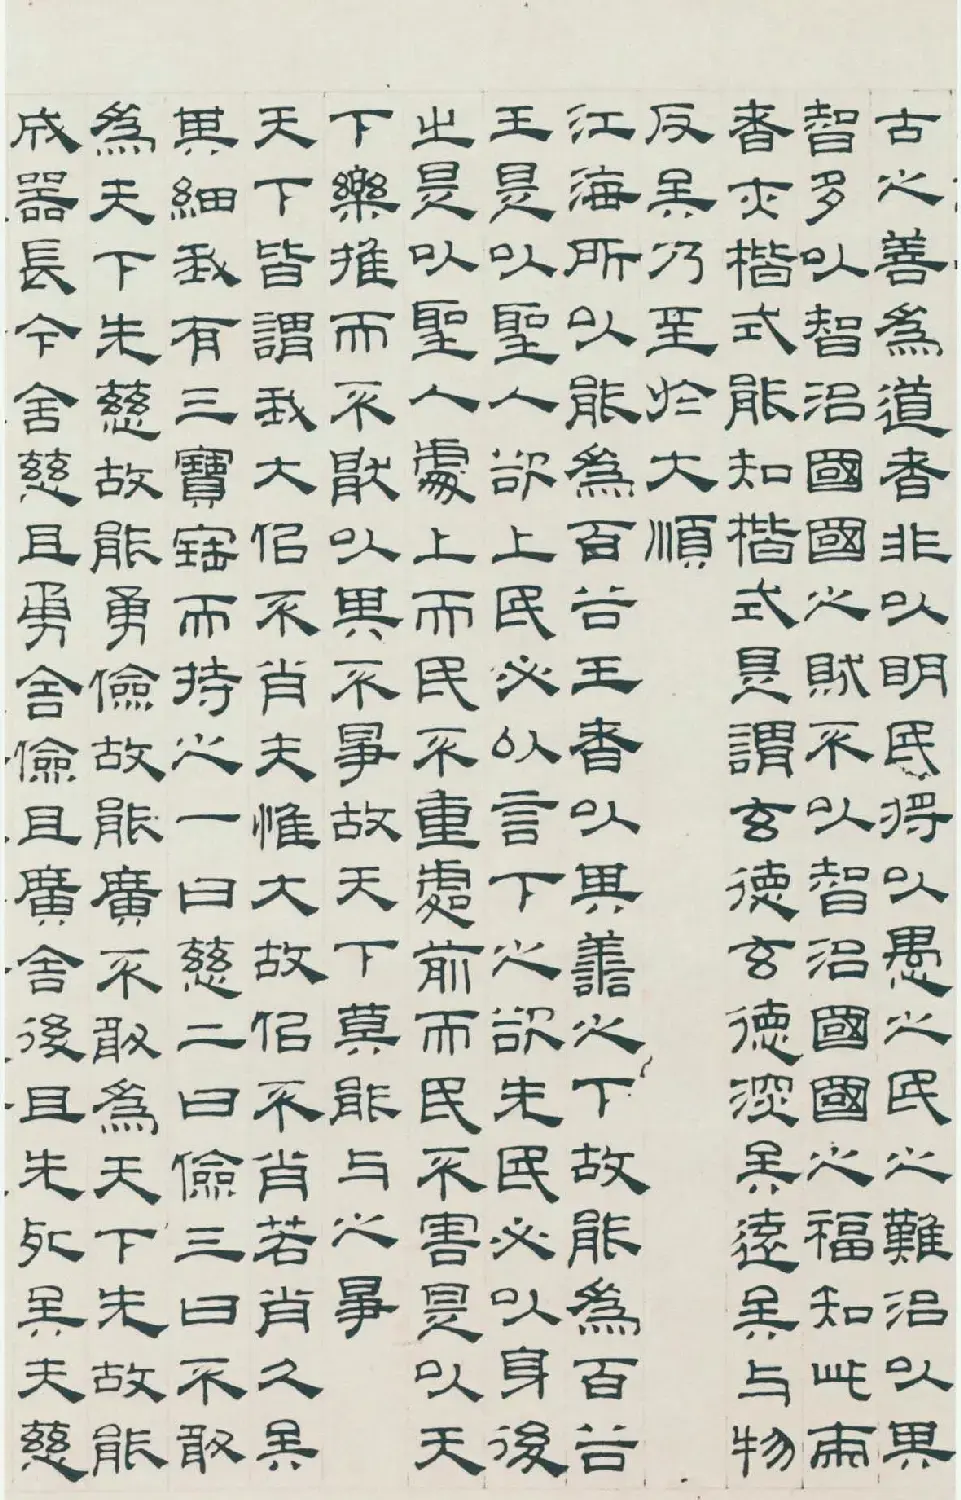 古之善爲道者非以明民將以愚之民之難治以其
智多以智治國國之賊不以智治國國之福知此兩
者亦楷式能知楷式是謂玄德玄德深矣遠矣与物
反矣乃至於大順
江海所以能爲百谷王者以其善之下故能爲百谷
王是以聖人欲上民必以言下之欲先民必以身後
之是以聖人處上而民不重處前而民不害是以天
下樂推而不厭以其不爭故天下莫能与之爭
天下皆謂我大似不肖夫惟大故似不肖若肖久矣
其細我有三寶寶而持之一曰慈二曰儉三曰不敢
爲天下先慈故能勇儉故能廣不敢爲天下先故能
成器長今舍慈且勇舍儉且廣舍後且先死矣夫慈